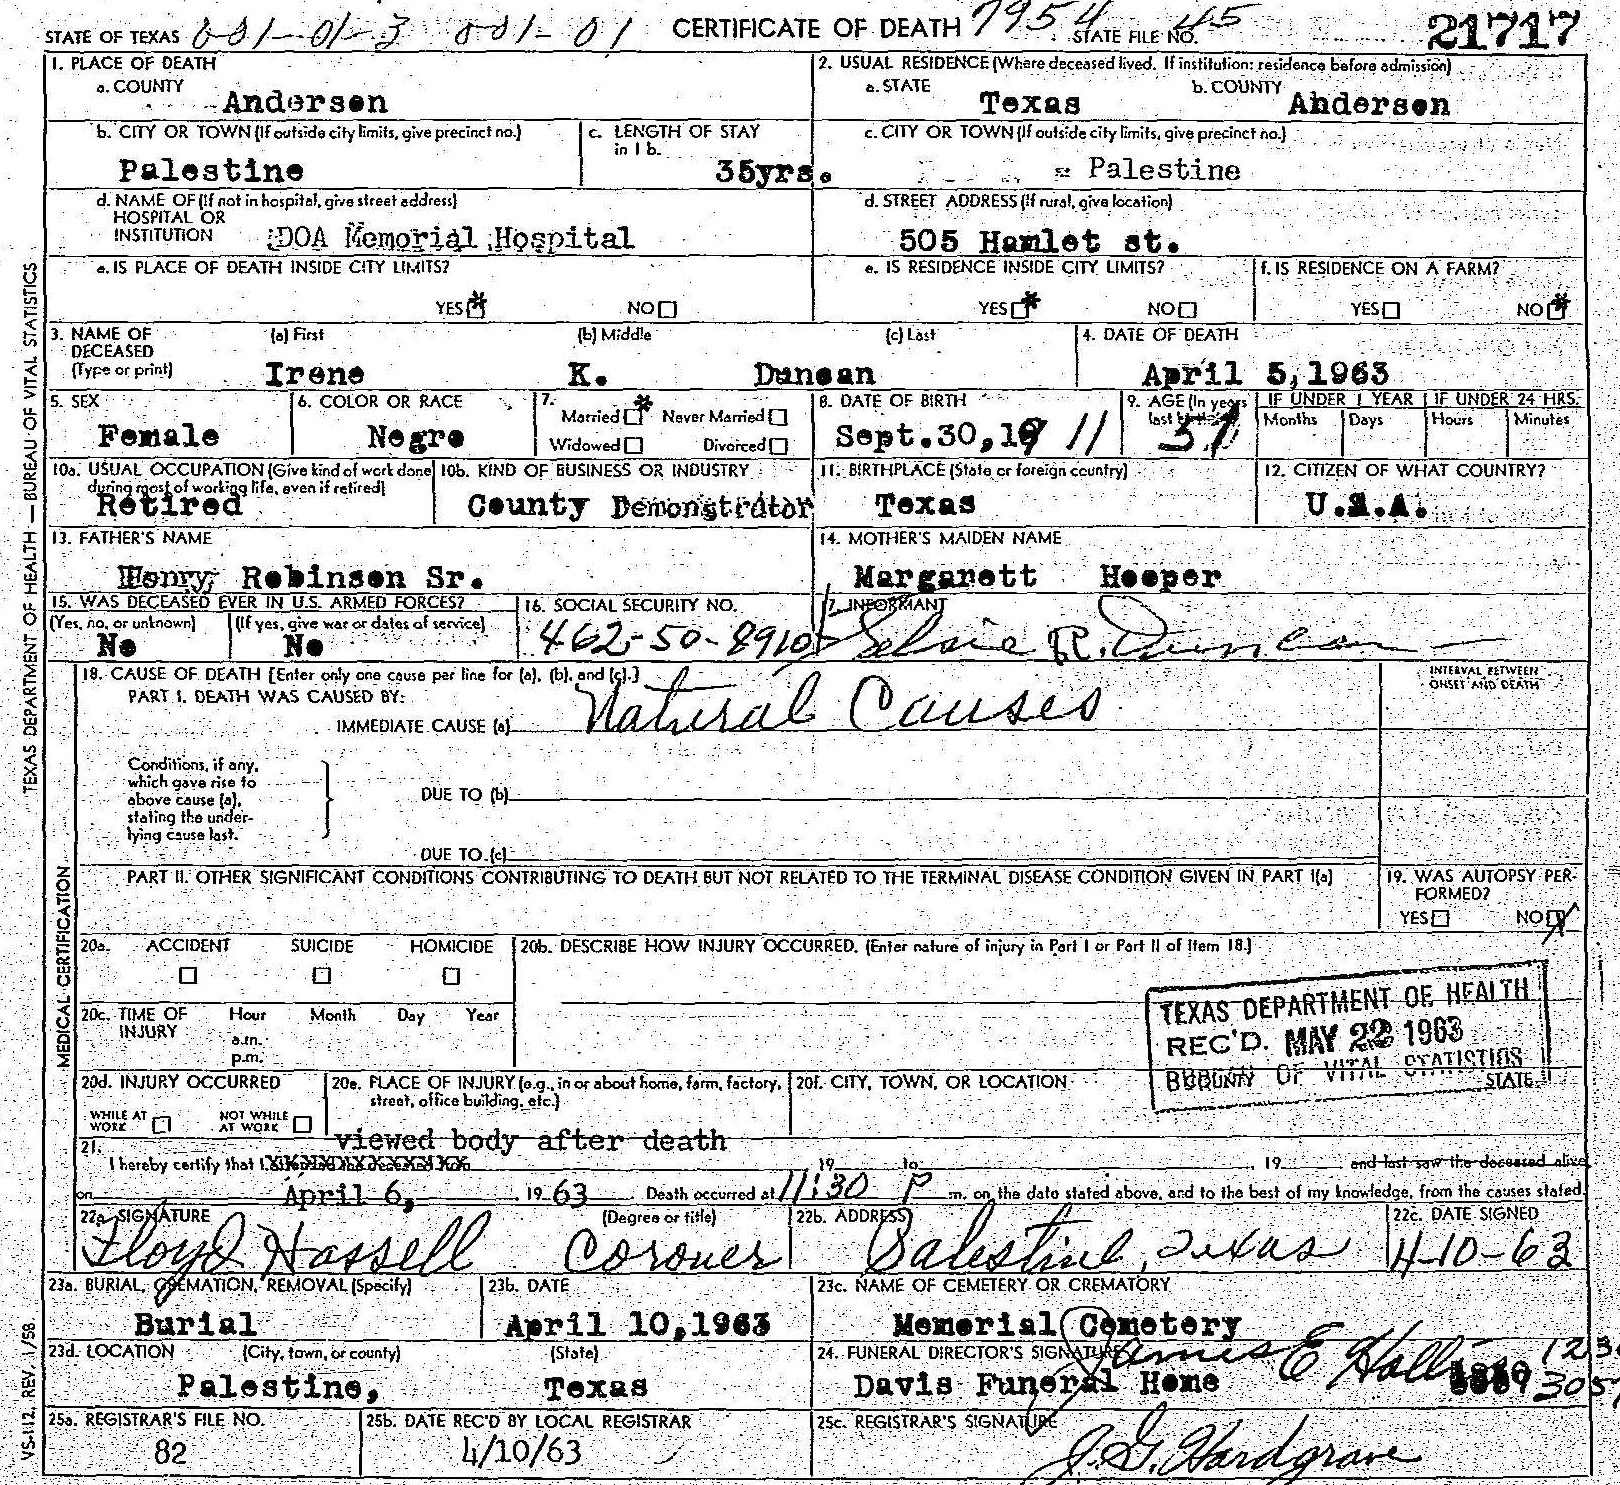 STATE OF TEXAS 001-01-3 001-01 CERTIFICATE OF DEATH 7954 STATE FILE NO. 45 21717
1. PLACE OF DEATH
a. COUNTY
Anderson
2. USUAL RESIDENCE (Where deceased lived. If institution: residence before admission)
a. STATE b. COUNTY
Texas Anderson
b. CITY OR TOWN (If outside city limits, give precinct no.)
Palestine
c. LENGTH OF STAY
in 1 b.
35yrs.
c. CITY OR TOWN (If outside city limits, give precinct no.)
Palestine
d. NAME OF (If not in hospital, give street address)
HOSPITAL OR
INSTITUTION DOA Memorial Hospital
d. STREET ADDRESS (If rural, give location)
505 Hamlet st.
e. IS PLACE OF DEATH INSIDE CITY LIMITS?
YES NO
e. IS RESIDENCE INSIDE CITY LIMITS?
YES NO
f. IS RESIDENCE ON A FARM?
YES NO
3. NAME OF
DECEASED
(Type or print)
(a) First (b) Middle (c) Last
Irene K. Duncan
4. DATE OF DEATH
April 5, 1963
5. SEX
Female
6. COLOR OR RACE
Negro
7.
Married Never Married
Widowed Divorced
8. DATE OF BIRTH
Sept. 30, 1911
9. AGE (In years
last birthday)
51
IF UNDER 1 YEAR IF UNDER 24 HRS.
Months Days Hours Minutes
10a. USUAL OCCUPATION (Give kind of work done
during most of working life, even if retired)
Retired
10b. KIND OF BUSINESS OR INDUSTRY
County Demonstrator
11. BIRTHPLACE (State or foreign country)
Texas
12. CITIZEN OF WHAT COUNTRY?
U.S.A.
13. FATHER'S NAME
Henry Robinson Sr.
14. MOTHER'S MAIDEN NAME
Marganett Hooper
15. WAS DECEASED EVER IN U.S. ARMED FORCES?
(Yes, no, or unknown) (If yes, give war or dates of service)
No No
16. SOCIAL SECURITY NO.
462-50-8910
17. INFORMANT
R. Duncan
18. CAUSE OF DEATH [Enter only one cause per line for (a), (b), and (c).]
PART I. DEATH WAS CAUSED BY:
IMMEDIATE CAUSE (a) Natural Causes
INTERVAL BETWEEN
ONSET AND DEATH
Conditions, if any,
which gave rise to
above cause (a),
stating the under-
lying cause last.
DUE TO (b)
DUE TO (c)
PART II. OTHER SIGNIFICANT CONDITIONS CONTRIBUTING TO DEATH BUT NOT RELATED TO THE TERMINAL DISEASE CONDITION GIVEN IN PART I(a)
19. WAS AUTOPSY PER-
FORMED?
YES NO
20a. ACCIDENT SUICIDE HOMICIDE
20b. DESCRIBE HOW INJURY OCCURRED. (Enter nature of injury in Part I or Part II of Item 18.)
20c. TIME OF
INJURY
Hour Month Day Year
a.m.
p.m.
TEXAS DEPARTMENT OF HEALTH
REC'D. MAY 22 1963
BUREAU OF VITAL STATISTICS
20d. INJURY OCCURRED
WHILE AT
WORK
NOT WHILE
AT WORK
20e. PLACE OF INJURY (e.g., in or about home, farm, factory,
street, office building, etc.)
20f. CITY, TOWN, OR LOCATION STATE
21. viewed body after death
I hereby certify that I attended the deceased from 19 to , 19 and last saw the deceased alive
on April 6, 1963 Death occurred at 11:30 P m. on the date stated above, and to the best of my knowledge, from the causes stated.
22a. SIGNATURE (Degree or title)
Floyd Hassell Coroner
22b. ADDRESS
Palestine, Texas
22c. DATE SIGNED
4-10-63
23a. BURIAL, CREMATION, REMOVAL (Specify)
Burial
23b. DATE
April 10, 1963
23c. NAME OF CEMETERY OR CREMATORY
Memorial Cemetery
23d. LOCATION (City, town, or county) (State)
Palestine, Texas
24. FUNERAL DIRECTOR'S SIGNATURE
James E
Davis Funeral Home
25a. REGISTRAR'S FILE NO.
82
25b. DATE REC'D BY LOCAL REGISTRAR
4/10/63
25c. REGISTRAR'S SIGNATURE
J. G. Hardgrave
TEXAS DEPARTMENT OF HEALTH — BUREAU OF VITAL STATISTICS
MEDICAL CERTIFICATION
VS-112, REV. 1/58